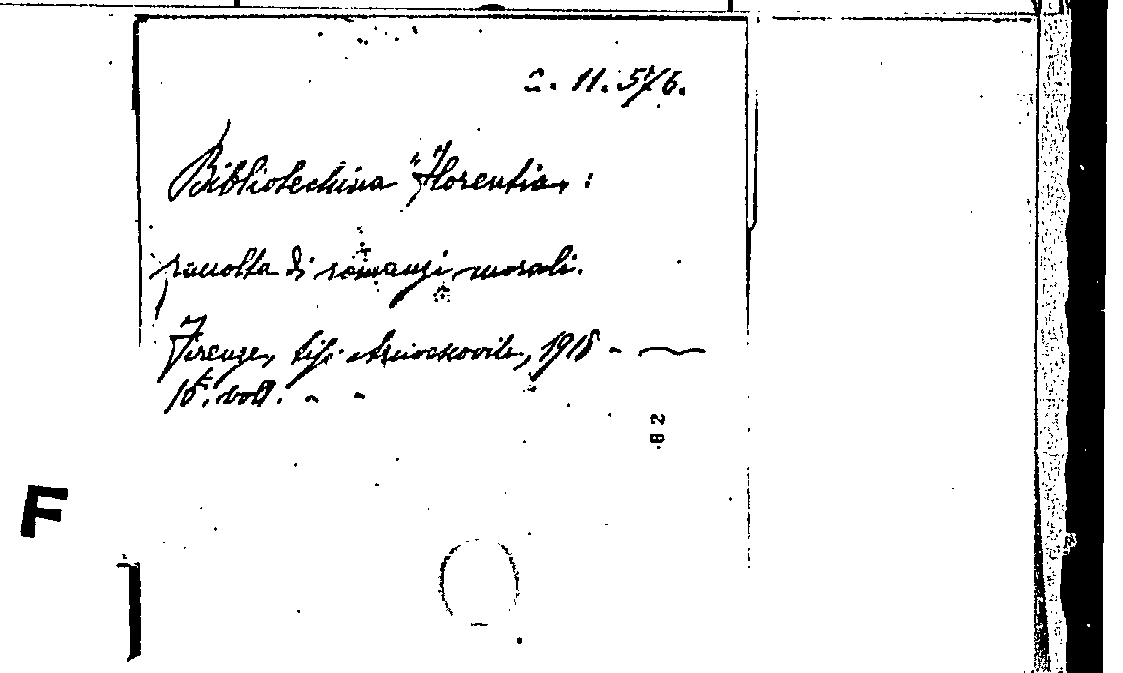 2. 11. 5/6.
Bibliotechina "Florentia„ :
raccolta di romanzi morali.
Firenze, tip. Arcivescovile, 1918 - ~
16°. voll. - -
82
F